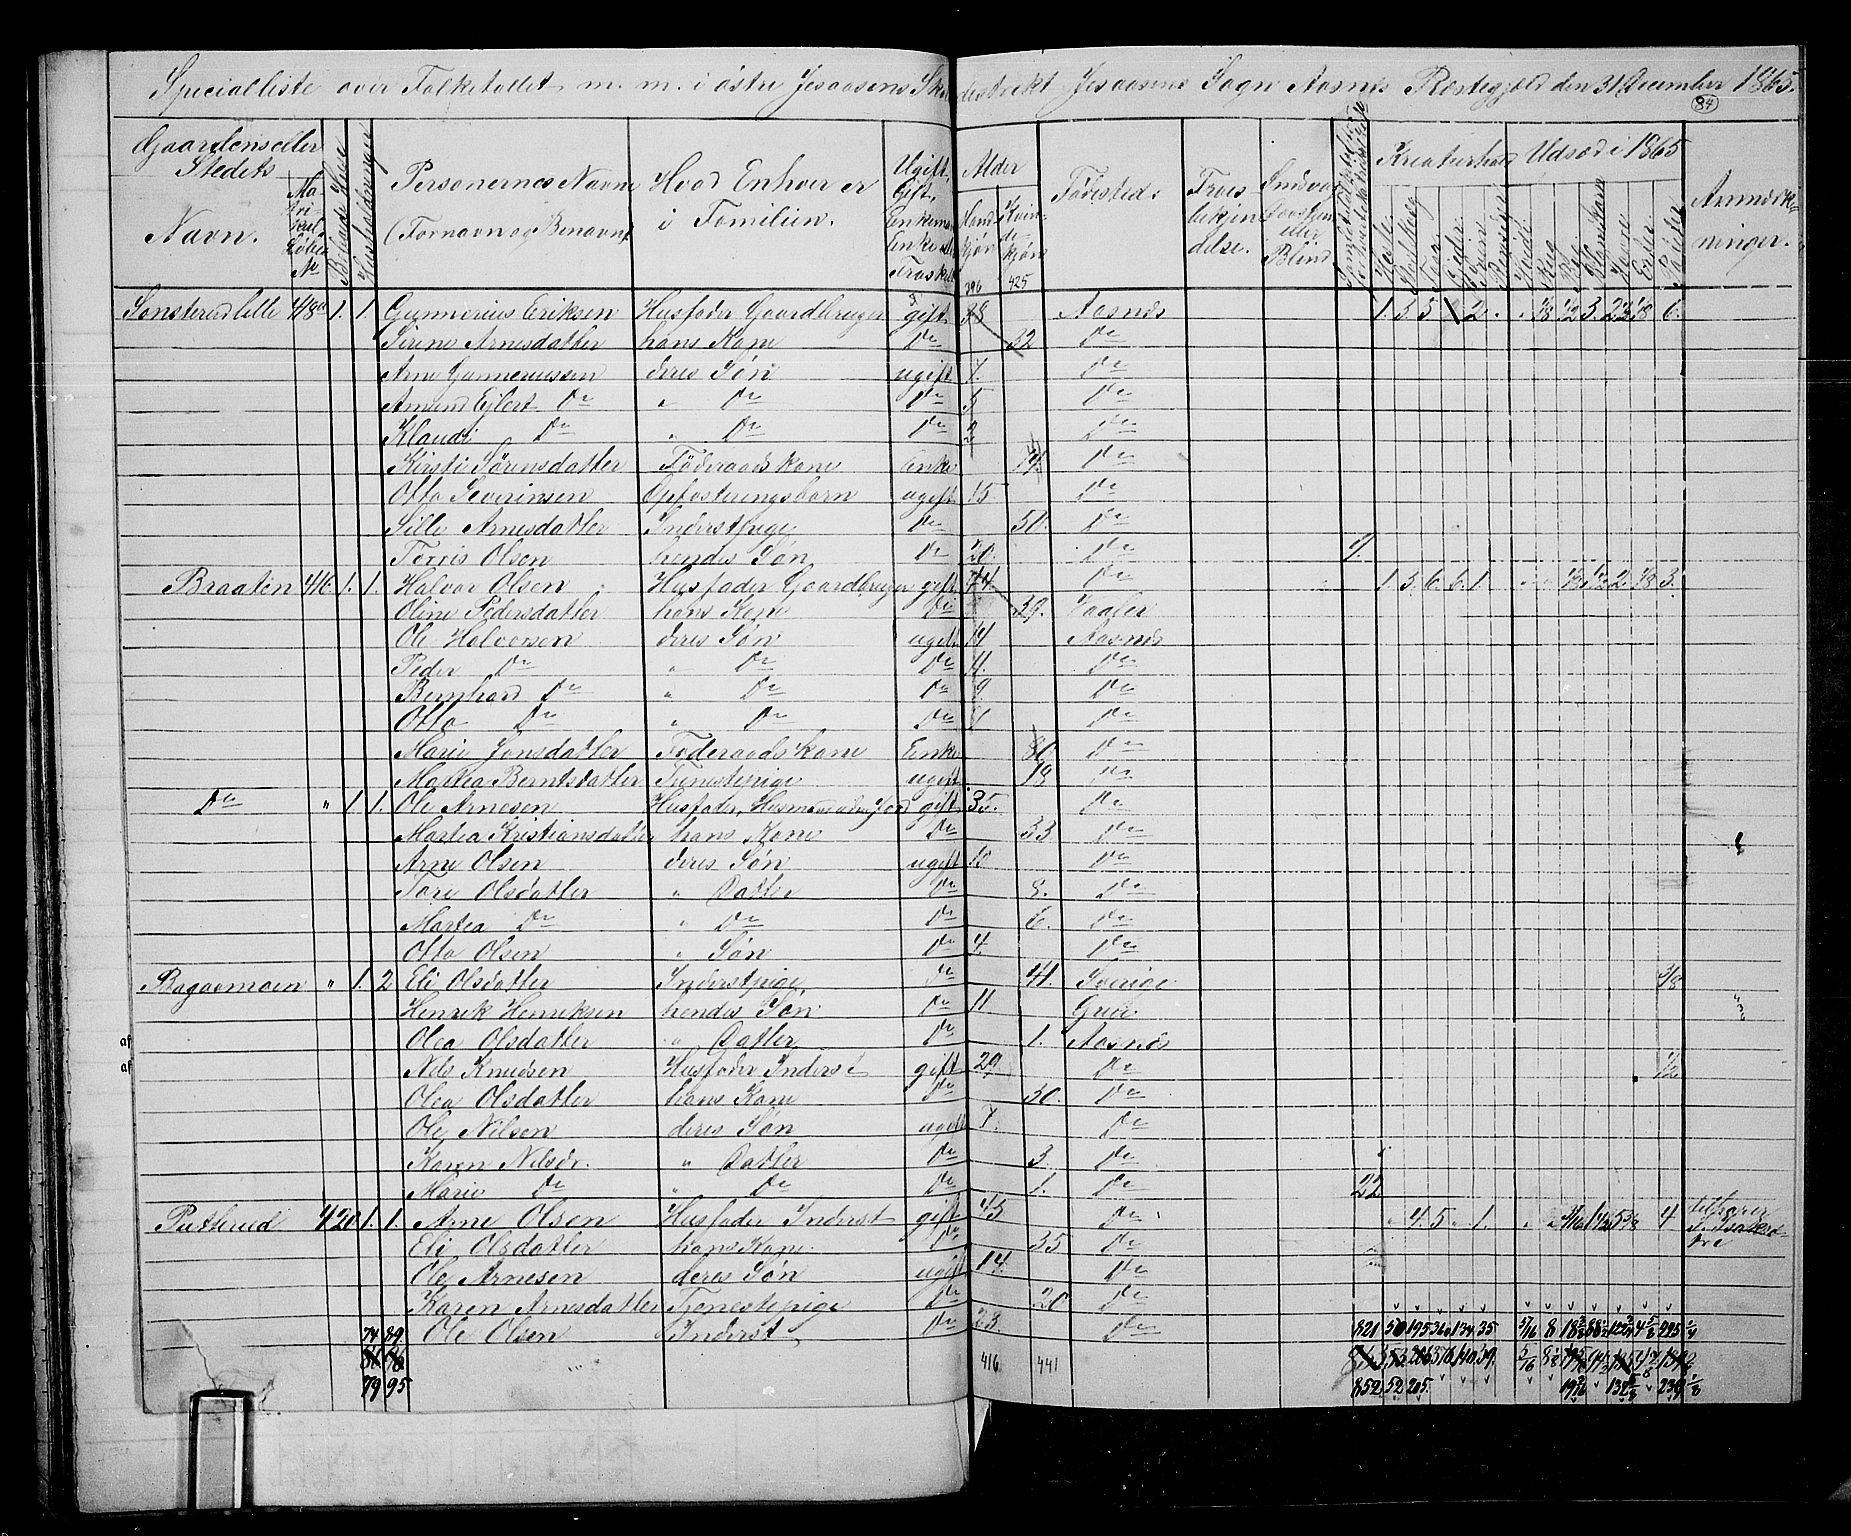 Specialliste over Folketallet m. m. i östre Jesaasens Skoledistrikt Jesaasens Sogn Aasnes Præstegjeld den 31 December 1865.
84
Gaardens eller Stedets Navn. Matrikul Løbe No Beboede Huse Husholdninger Personernes Navne (Fornavn og Benavn) Hvad Enhver er i Familien. Ugift, Gift, Alder Mandkjøn Kvindekjøn Födested. Troesbekjendelse. Sindssvag Døvstum eller Blind Kreaturhold Udsæd i 1865 Anmærkninger.
396 425
Heste Faar Gjeder Sviin Hvede Rug Byg Blandkorn Havre Erter Poteter
Sønsterud lille 418 1. 1. Gunnerius Eriksen Husfader Gaardbruger gift 38 Aasnes 1. 3. 5 2. 1/8 1/2 3. 6.
Sirene Arnesdatter hans Kone Do 32 Do
Arne Gunneriussen deres Søn ugift 7. Do
Amund Eilert Do " Do Do 5 Do
Klaudi Do " Do Do 2 Do
Kirsti Sörensdatter Föderaadskone Enke 74. Do
Otto Severinsen Opfostringsbarn ugift 15 Do
Sille Arnesdatter Inderstpige Do 50. Do
Torris Olsen hendes Søn Do 20. Do 9.
Braaten 416. 1. 1. Halvor Olsen Husfader Gaardbruger gift 44 Do 1. 3. 6. 6. 1. 1/8 3.
Oline Pedersdatter hans Kone Do 39. Vaaler
Ole Halvorsen deres Søn ugift 14 Aasnes
Peder Do " Do Do 11. Do
Bernhard Do " Do Do 9. Do
Otto Do " Do Do Do
Marie Jonsdatter Föderaadskone Enke 80 Do
Martea Berntsdatter Tjenestepige ugift 18 Do
Do " 1. 1. Ole Arnesen Husfader, Husmand uden Jord gift 35. Do
Martea Kristiansdatter hans Kone Do 33. Do
Arne Olsen deres Søn ugift 10 Do
Tore Olsdatter " Datter Do 8. Do
Martea Do " Do Do 6. Do
Otto Olsen " Søn Do 4. Do
Bagaamoen " 1. 2 Eli Olsdatter Inderstpige Do 41. Sverige 3/8
Henrik Henriksen hendes Søn Do 11 Grue
Olea Olsdatter " Datter Do 1. Aasnes
Nils Knudsen Husfader Inderst gift 29 Do 1/2
Olea Olsdatter hans Kone Do 30. Do
Ole Nilsen deres Søn ugift 7. Do
Karen Nilsdr. " Datter Do 3. Do
Marie Do " Do Do 1. Do 22
Putterud 420 1. 1. Arne Olsen Husfader Inderst gift 45 Do 4. 5 1. 4 tilhører
Eli Olsdatter hans Kone Do 35 Do
Ole Arnesen deres Søn ugift 14. Do
Karen Arnesdatter Tjenestepige Do 20 Do
74 89. Ole Olsen Inderst Do 23. Do 821 50 195 360 134 35 5/16 8
416 441
79 95 852 52 205.